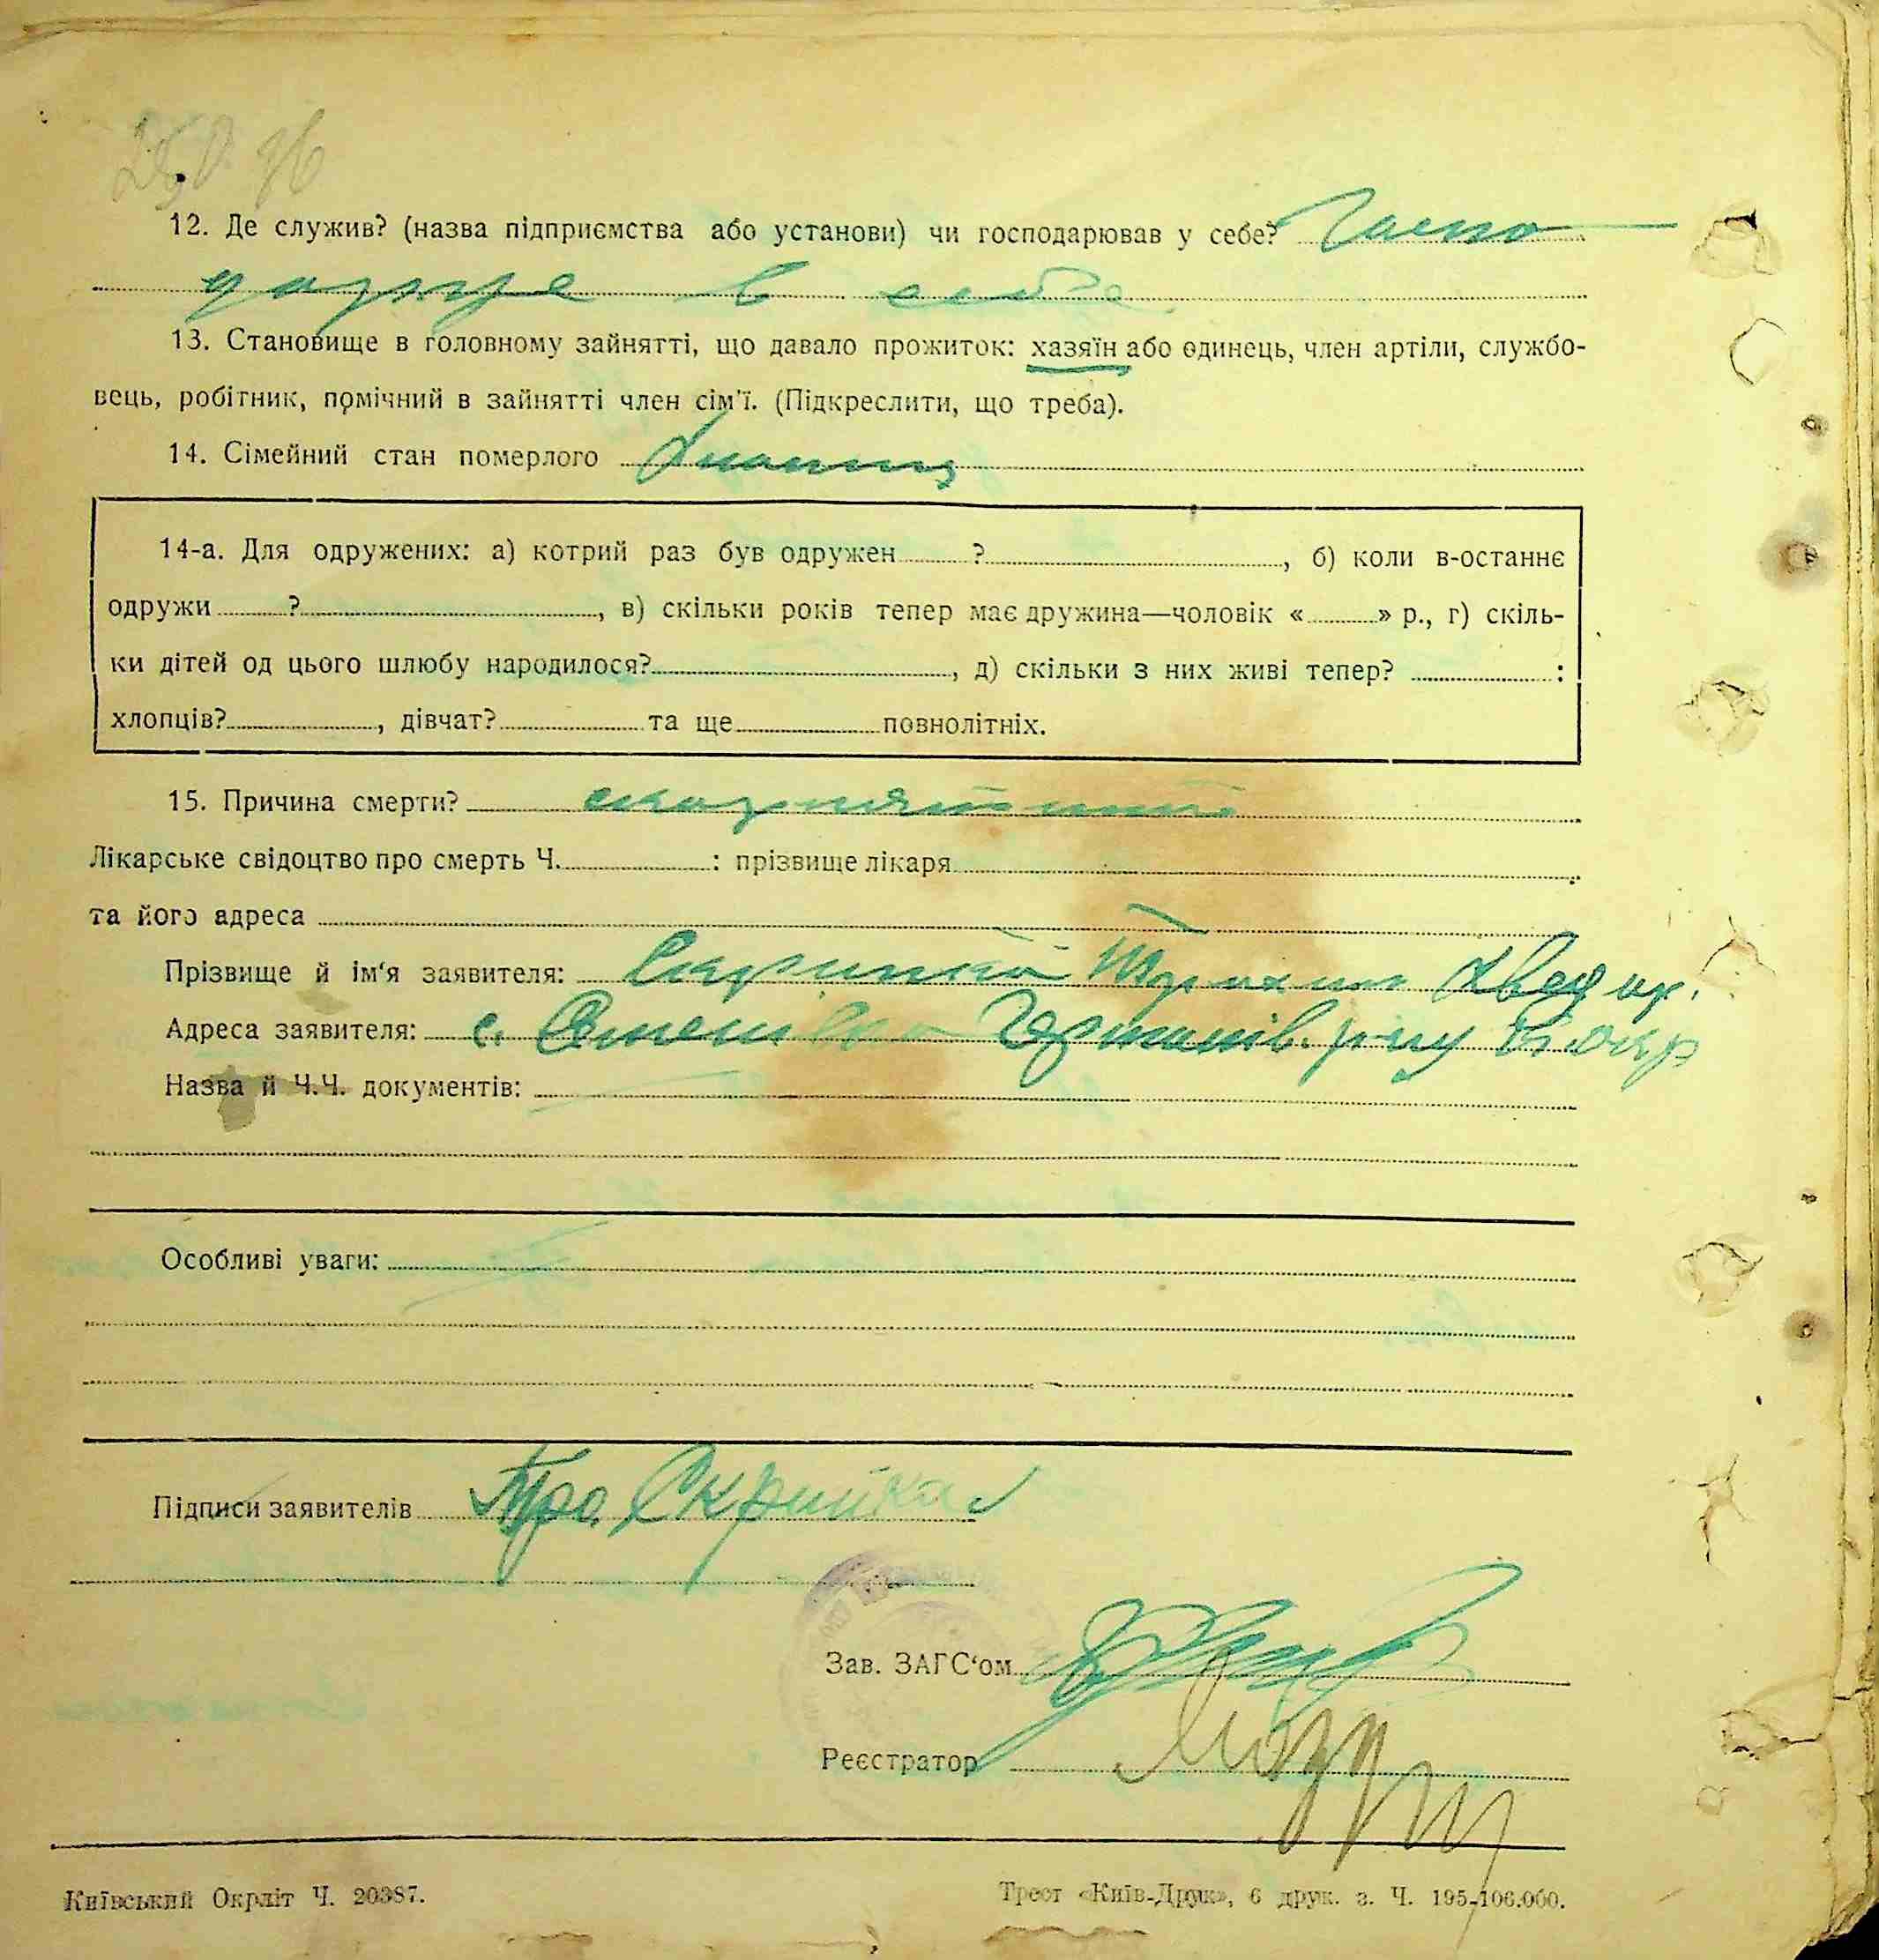 12. Де служив? (назва підприємства або установи) чи господарював у себе? Госпо
дарюе в себе
13. Становище в головному зайнятті, що давало прожиток: хазяїн або одинець, член артіли, службо-
вець, робітник, помічний в зайнятті член сім'ї. (Підкреслити, що треба).
14. Сімейний стан померлого
14-а. Для одружених: а) котрий раз був одружен ? , б) коли в-останнє
одружи ? , в) скільки років тепер має дружина—чоловік « » р., г) скіль-
ки дітей од цього шлюбу народилося? , д) скільки з них живі тепер? :
хлопців? , дівчат? та ще повнолітніх.
15. Причина смерти? скарлятина
Лікарське свідоцтво про смерть Ч. : прізвище лікаря
та його адреса
Прізвище й ім'я заявителя: Скрипка
Адреса заявителя: с.
Назва й Ч.Ч. документів:
Особливі уваги:
Підписи заявителів Скрипка
Зав. ЗАГС'ом
Реєстратор
Київський Окрліт Ч. 20387.
Трест «Київ-Друк», 6 друк. з. Ч. 195-106.000.